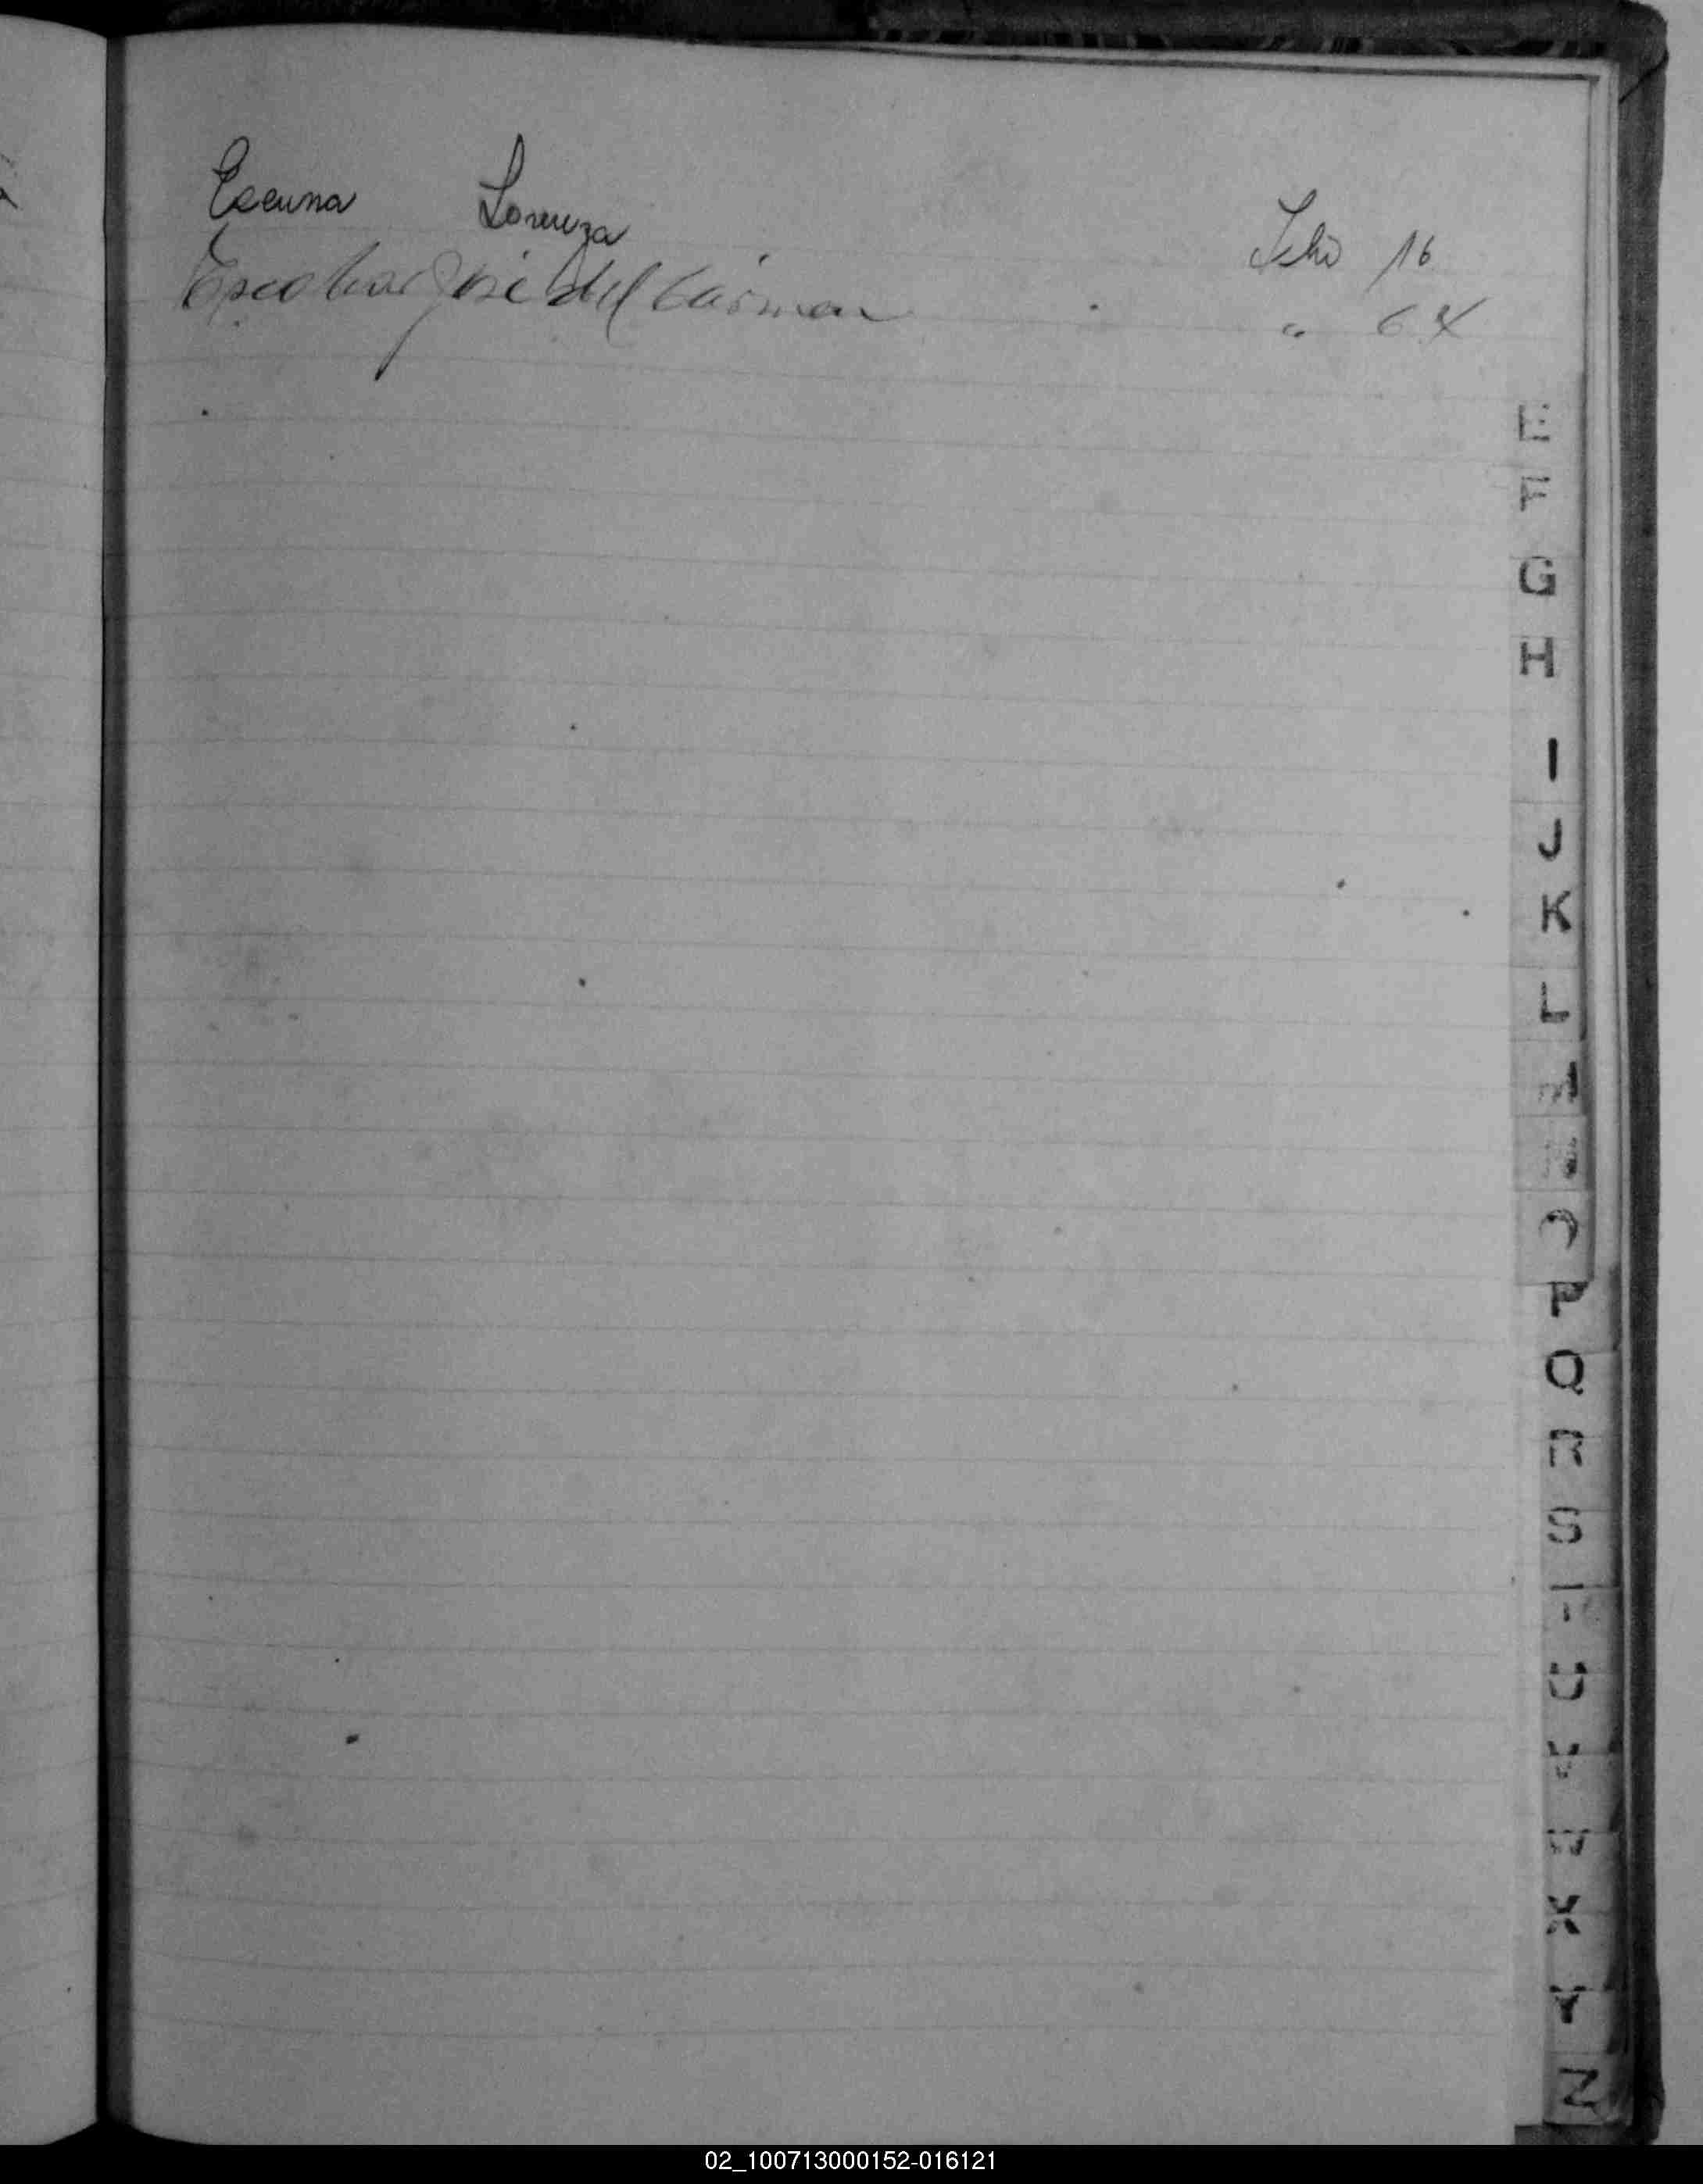 Escuna Lorenza Folio 16
Escobar José del Carmen " 64
E
F
G
H
I
J
K
L
M
N
O
P
Q
R
S
T
U
V
W
X
Y
Z
02_100713000152-016121